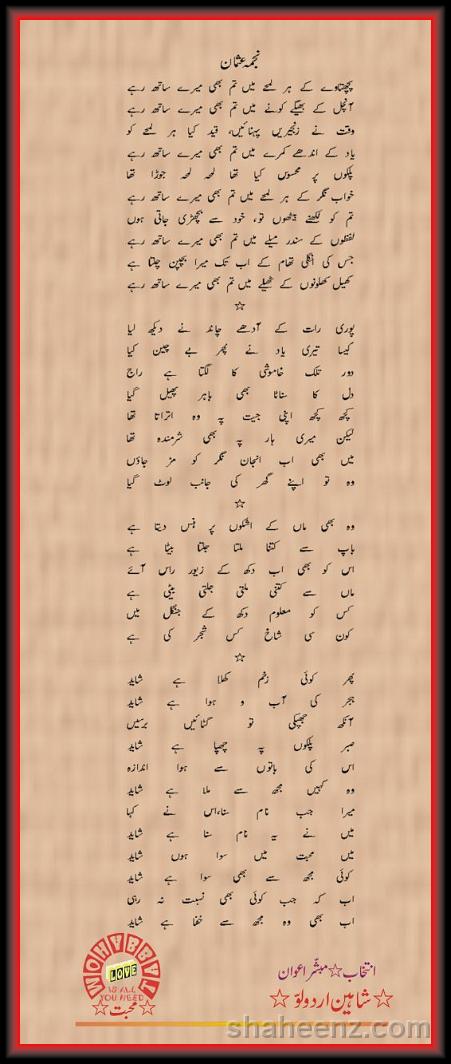 نجمہ عثمان
پچھتاوے کے ہر لمحے میں تم بھی میرے ساتھ رہے
آنچل کے بھیگے کونے میں تم بھی میرے ساتھ رہے
وقت نے زنجیریں پہنائیں، قید کیا ہر لمحے کو
یاد کے اندھے کمرے میں تم بھی میرے ساتھ رہے
پلکوں پر محسوس کیا تھا لمحہ لمحہ جوڑا تھا
خواب نگر کے ہر لمحے میں تم بھی میرے ساتھ رہے
تم کو لکھنے بیٹھوں تو، خود سے بچھڑی جاتی ہوں
لفظوں کے سندر میلے میں تم بھی میرے ساتھ رہے
جس کی انگلی تھام کے اب تک میرا بچپن چلتا ہے
کھیل کھلونوں کے ٹھیلے میں تم بھی میرے ساتھ رہے
☆
پوری رات کے آدھے چاند نے دیکھ لیا
کیسا تیری یاد نے پھر بے چین کیا
دور تلک خاموشی کا لگتا ہے راج
دل کا سناٹا بھی باہر پھیل گیا
کچھ کچھ اپنی جیت پہ وہ اتراتا تھا
لیکن میری ہار پہ بھی شرمندہ تھا
میں بھی اب انجان نگر کو مڑ جاؤں
وہ تو اپنے گھر کی جانب لوٹ گیا
☆
وہ بھی ماں کے اشکوں پر ہنس دیتا ہے
باپ سے کتنا ملتا جلتا بیٹا ہے
اس کو بھی اب دکھ کے زیور راس آئے
ماں سے کتنی ملتی جلتی بیٹی ہے
کس کو معلوم دکھ کے جنگل میں
کون سی شاخ کس شجر کی ہے
☆
پھر کوئی زخم کھلا ہے شاید
ہجر کی آب و ہوا ہے شاید
آنکھ جھپکی تو گھٹائیں برسیں
صبر پلکوں پہ چھپا ہے شاید
اس کی باتوں سے ہوا اندازہ
وہ کہیں مجھ سے ملا ہے شاید
میرا جب نام سنا،اس نے کہا
میں نے یہ نام سنا ہے شاید
میں محبت میں سوا ہوں شاید
کوئی مجھ سے بھی سوا ہے شاید
اب کہ جب کوئی بھی نسبت نہ رہی
اب بھی وہ مجھ سے خفا ہے شاید
انتخاب☆مبشّر اعوان
☆شاہین اردو لَو☆
MOHABBAT
LOVE
IS ALL
YOU NEED
☆محبت☆
shaheenz.com